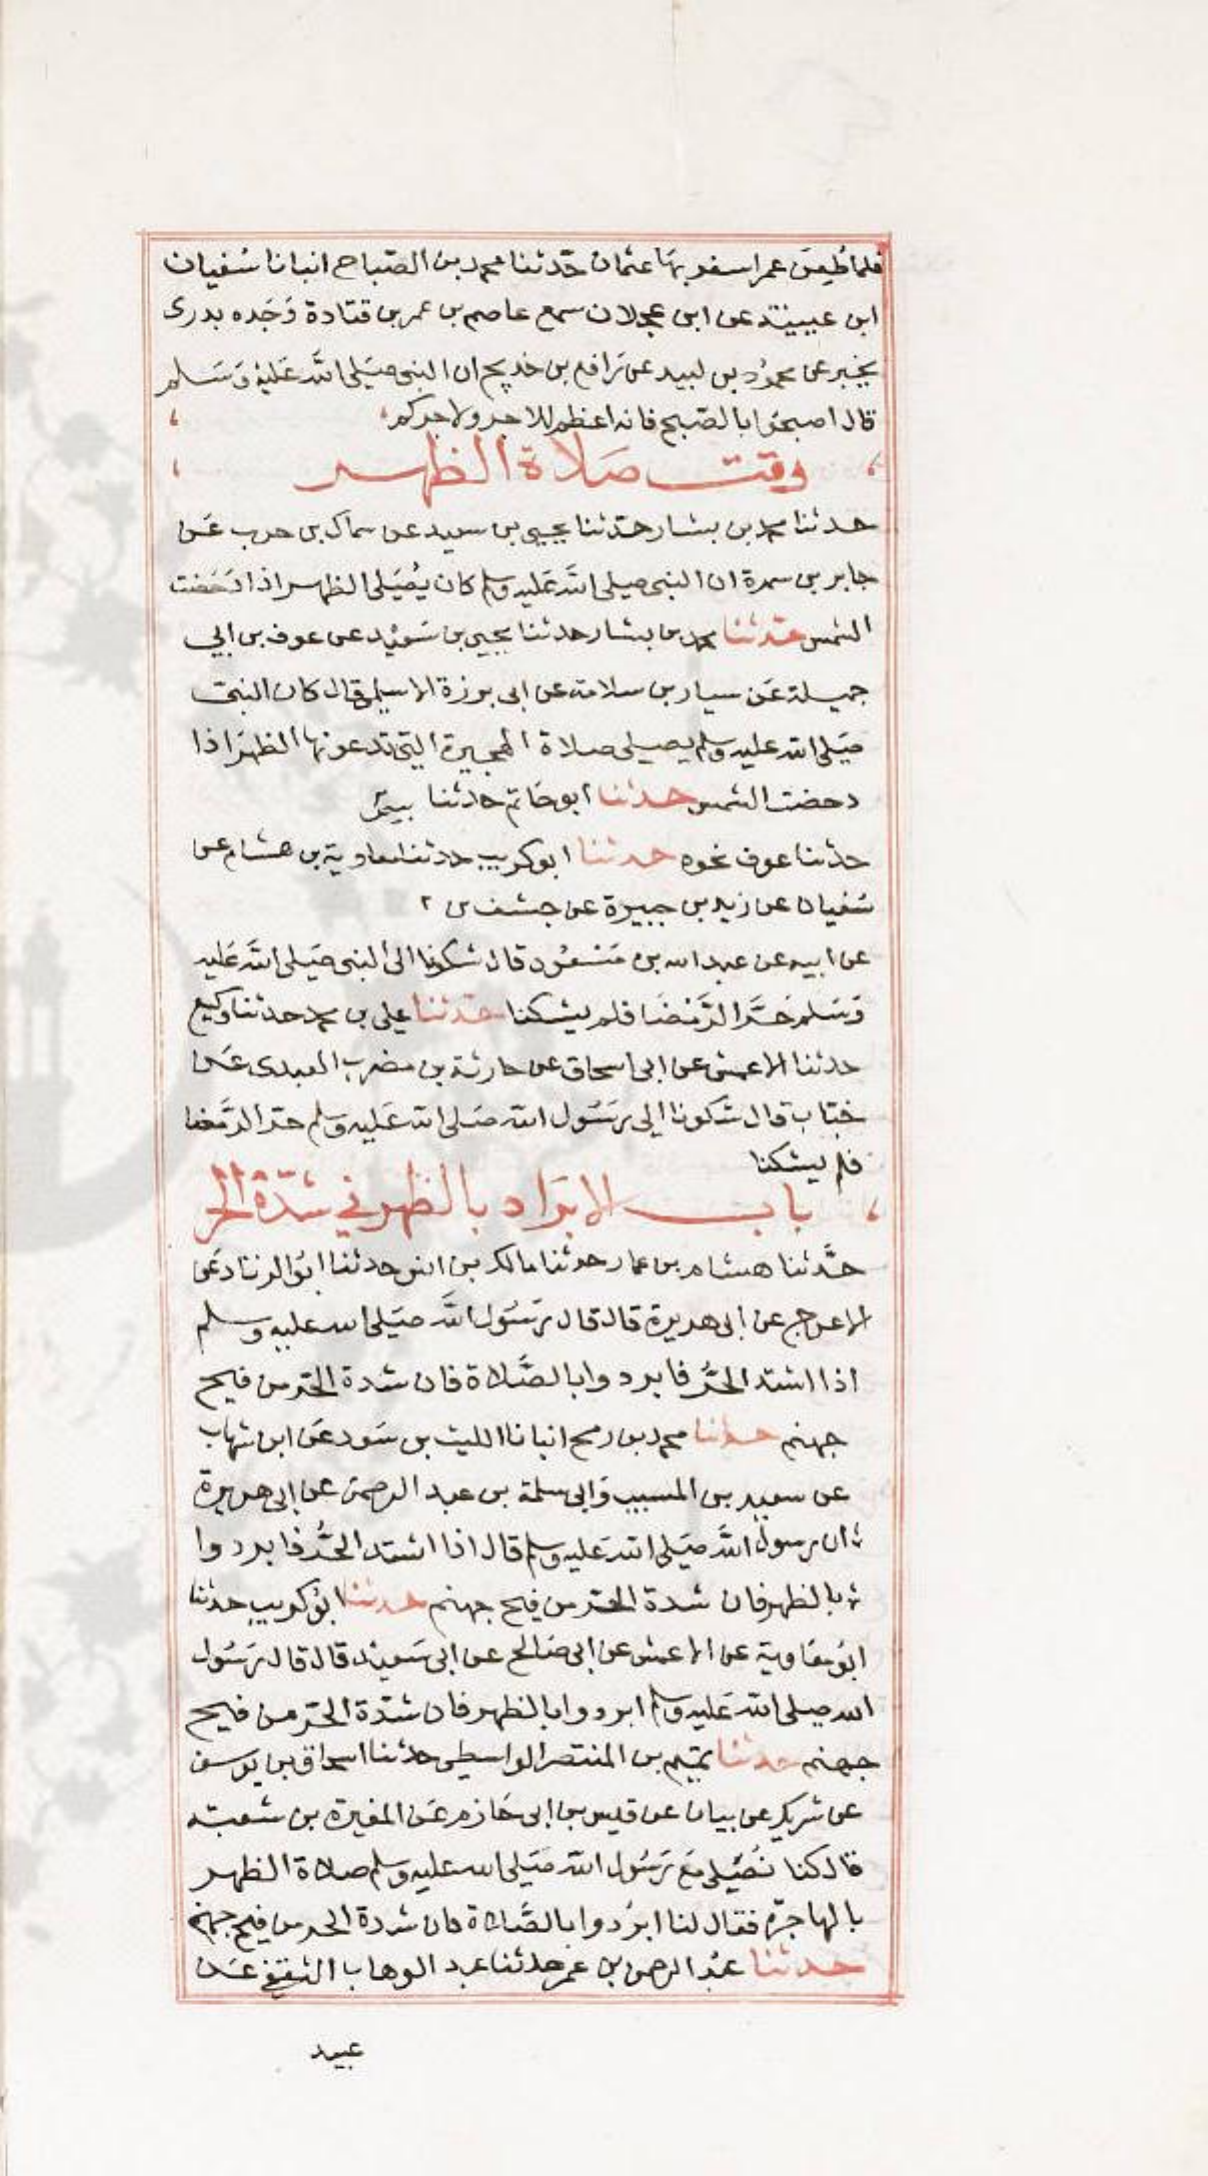 فلما طُعِن عمر اسفر بها عثمان حدثنا محمد بن الصباح انبانا سُفيان
ابن عيينة عن ابن عجلان سمع عاصم بن عمر بن قتادة وَجَده بدرى
يخبر عن محمود بن لبيد عن رَافع بن خديج ان النبي صَلى اللَّه عَليْه وَسَلم
قال اصبحوا بالصّبح فانه اعظم للاجر ولاجركم
وقت صَلاة الظهر
حدثنا محمد بن بشار حدّثنا يحيى بن سعيد عن سماك بن حرب عَن
جابر بن سمرة ان النبي صلى اللَّه عَليه وسلم كان يُصَلى الظهر اذا دَحَضت
الشمس حدثنا محمد بن بشار حدثنا يحيى بن سَعيْد عن عوف بن ابي
جميلة عَن سيار بن سلامة عن ابى برزة الاسلمى قال كان النبى
صَلى الله عليه وسلم يصلى صلاة الهجيرة التي تدعونها الظهر اذا
دحضت الشمس حدثنا ابو حَاتم حدثنا
حدثنا عوف نحوه حدثنا ابو كريب حدثنا معاوية بن هشام عن
سُفيان عن زيد بن جبيرة عن جشف بن ٢
عن ابيه عن عبد الله بن مَسْعُود قال شكونا الى النبى صَلى اللَّه عَليه
وَسَلم حَرَّ الرَّمْضَا فلم يشكنا حدثنا علي بن محمد حدثنا وكيع
حدثنا الاعمش عن ابى اسحاق عن حارثة بن مضرب العبدى عَن
خباب قال شكونا الى رَسُول الله صَلى الله عَليه وسلم حر الرَّمضا
فلم يشكنا
باب الابرَاد بالظهر في شدّة الحر
حَدَّثنا هشام بن عمار حدثنا مالك بن انس حدثنا ابُو الزناد عَن
الاعرج عن ابى هريرة قال قال رَسُول اللَّه صَلى الله عليه وسلم
اذا اشتد الحَرُّ فابردوا بالصَّلاة فان شدة الحَر من فيح
جهنم حدثنا محمد بن رمح انبانا الليث بن سَعد عَن ابن شهاب
عن سعيد بن المسيب وَابى سلمة بن عبد الرحمن عن ابى هريرة
ان رسول اللَّه صَلى الله عَليه وسلم قال اذا اشتد الحَرُّ فابردوا
بالظهر فان شدة الحَر من فيح جهنم حدثنا ابُو كريب حدثنا
ابُو معَاوية عن الاعمش عن ابى صَالح عن ابى سَعيْد قال قال رَسُول
الله صلى الله عَليه وسلم ابردوا بالظهر فان شدّة الحَر من فيح
جهنم حدثنا تميم بن المنتصر الواسطى حدثنا اسحاق بن يوسف
عن شريك عن بيان عن قيس بن ابى حَازم عَن المغيرة بن شعبة
قال كنا نُصَلى مَعَ رَسُول الله صَلى الله عليه وسلم صلاة الظهر
بالهاجرة فقال لنا ابرُدوا بالصَّلاة فان شدة الحر من فيح جهنم
حدثنا عبْد الرحمن بن عمر حدثنا عبد الوهاب الثقفي عَن
عبيد